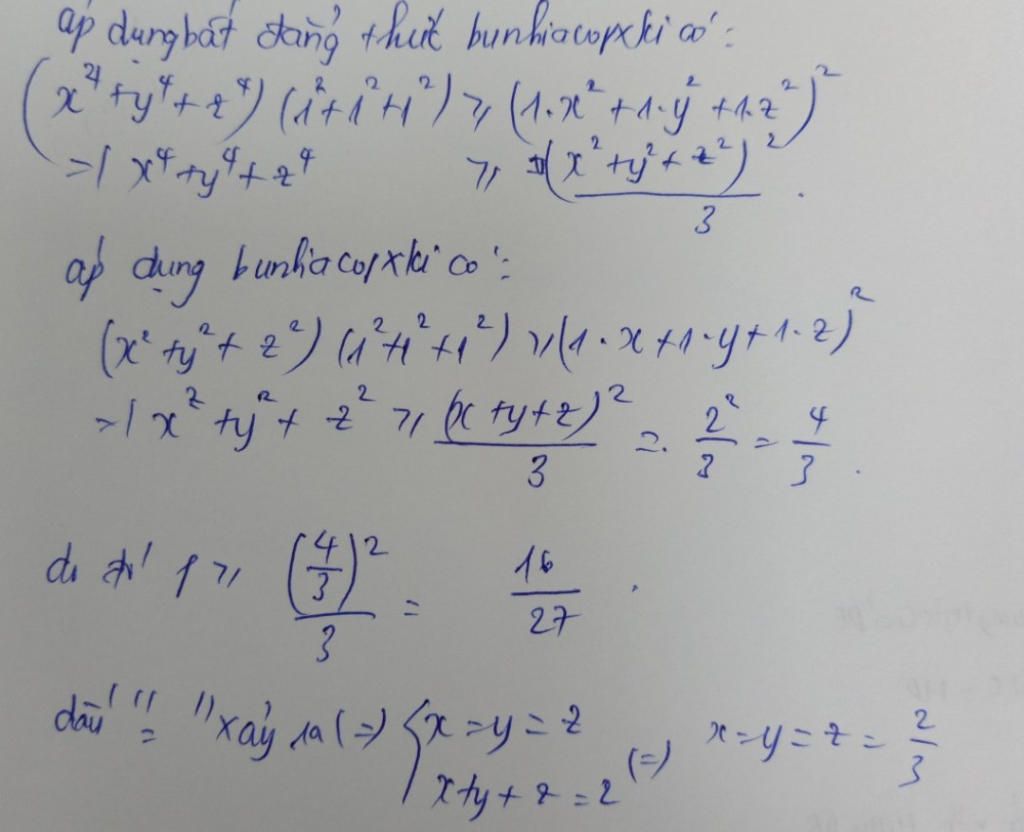 áp dụng bất đẳng thức bunhiacopxki có:
(x⁴+y⁴+z⁴)(1²+1²+1²) ≥ (1.x²+1.y²+1.z²)²
=> x⁴+y⁴+z⁴ ≥ (x²+y²+z²)²/3.
áp dụng bunhiacopxki có:
(x²+y²+z²)(1²+1²+1²) ≥ (1.x+1.y+1.z)²
=> x²+y²+z² ≥ (x+y+z)²/3 = 2²/3 = 4/3.
do đó P ≥ (4/3)²/3 = 16/27.
dấu "=" xảy ra <=> { x=y=z
x+y+z=2 <=> x=y=z=2/3